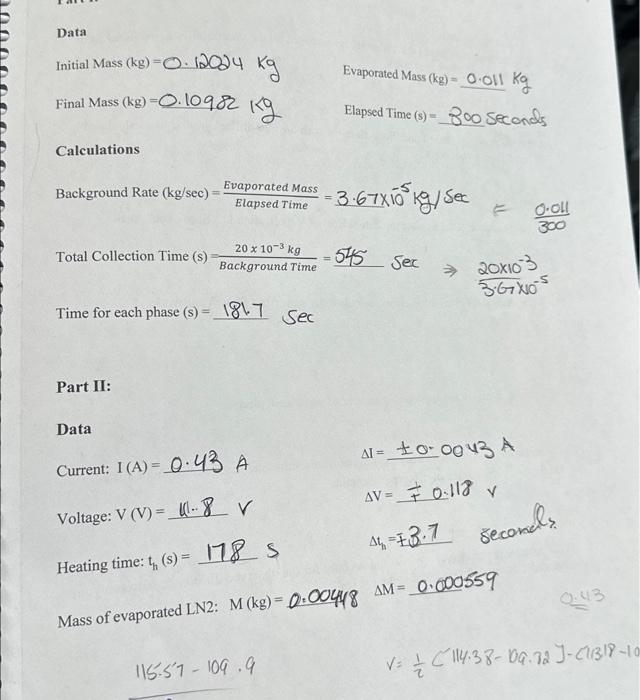 Data
Initial Mass (kg) = 0.12024 Kg
Evaporated Mass (kg) = 0.011 Kg
Final Mass (kg) = 0.10982 Kg
Elapsed Time (s) = 300 Seconds
Calculations
Background Rate (kg/sec) = Evaporated Mass / Elapsed Time = 3.67x10^-5 Kg/Sec = 0.011 / 300
Total Collection Time (s) = 20 x 10^-3 kg / Background Time = 545 Sec ⇒ 20x10^-3 / 3.67x10^-5
Time for each phase (s) = 181.7 Sec
Part II:
Data
Current: I (A) = 0.43 A
ΔI = ±0.0043 A
Voltage: V (V) = 11.8 V
ΔV = ∓ 0.118 V
Heating time: t_h (s) = 178 s
Δt_h = ∓3.7 seconds
Mass of evaporated LN2: M (kg) = 0.00448
ΔM = 0.000559
0.43
115.57 - 109.9
V = 1/2 [114.38 - 109.72] - (113.18 - 10